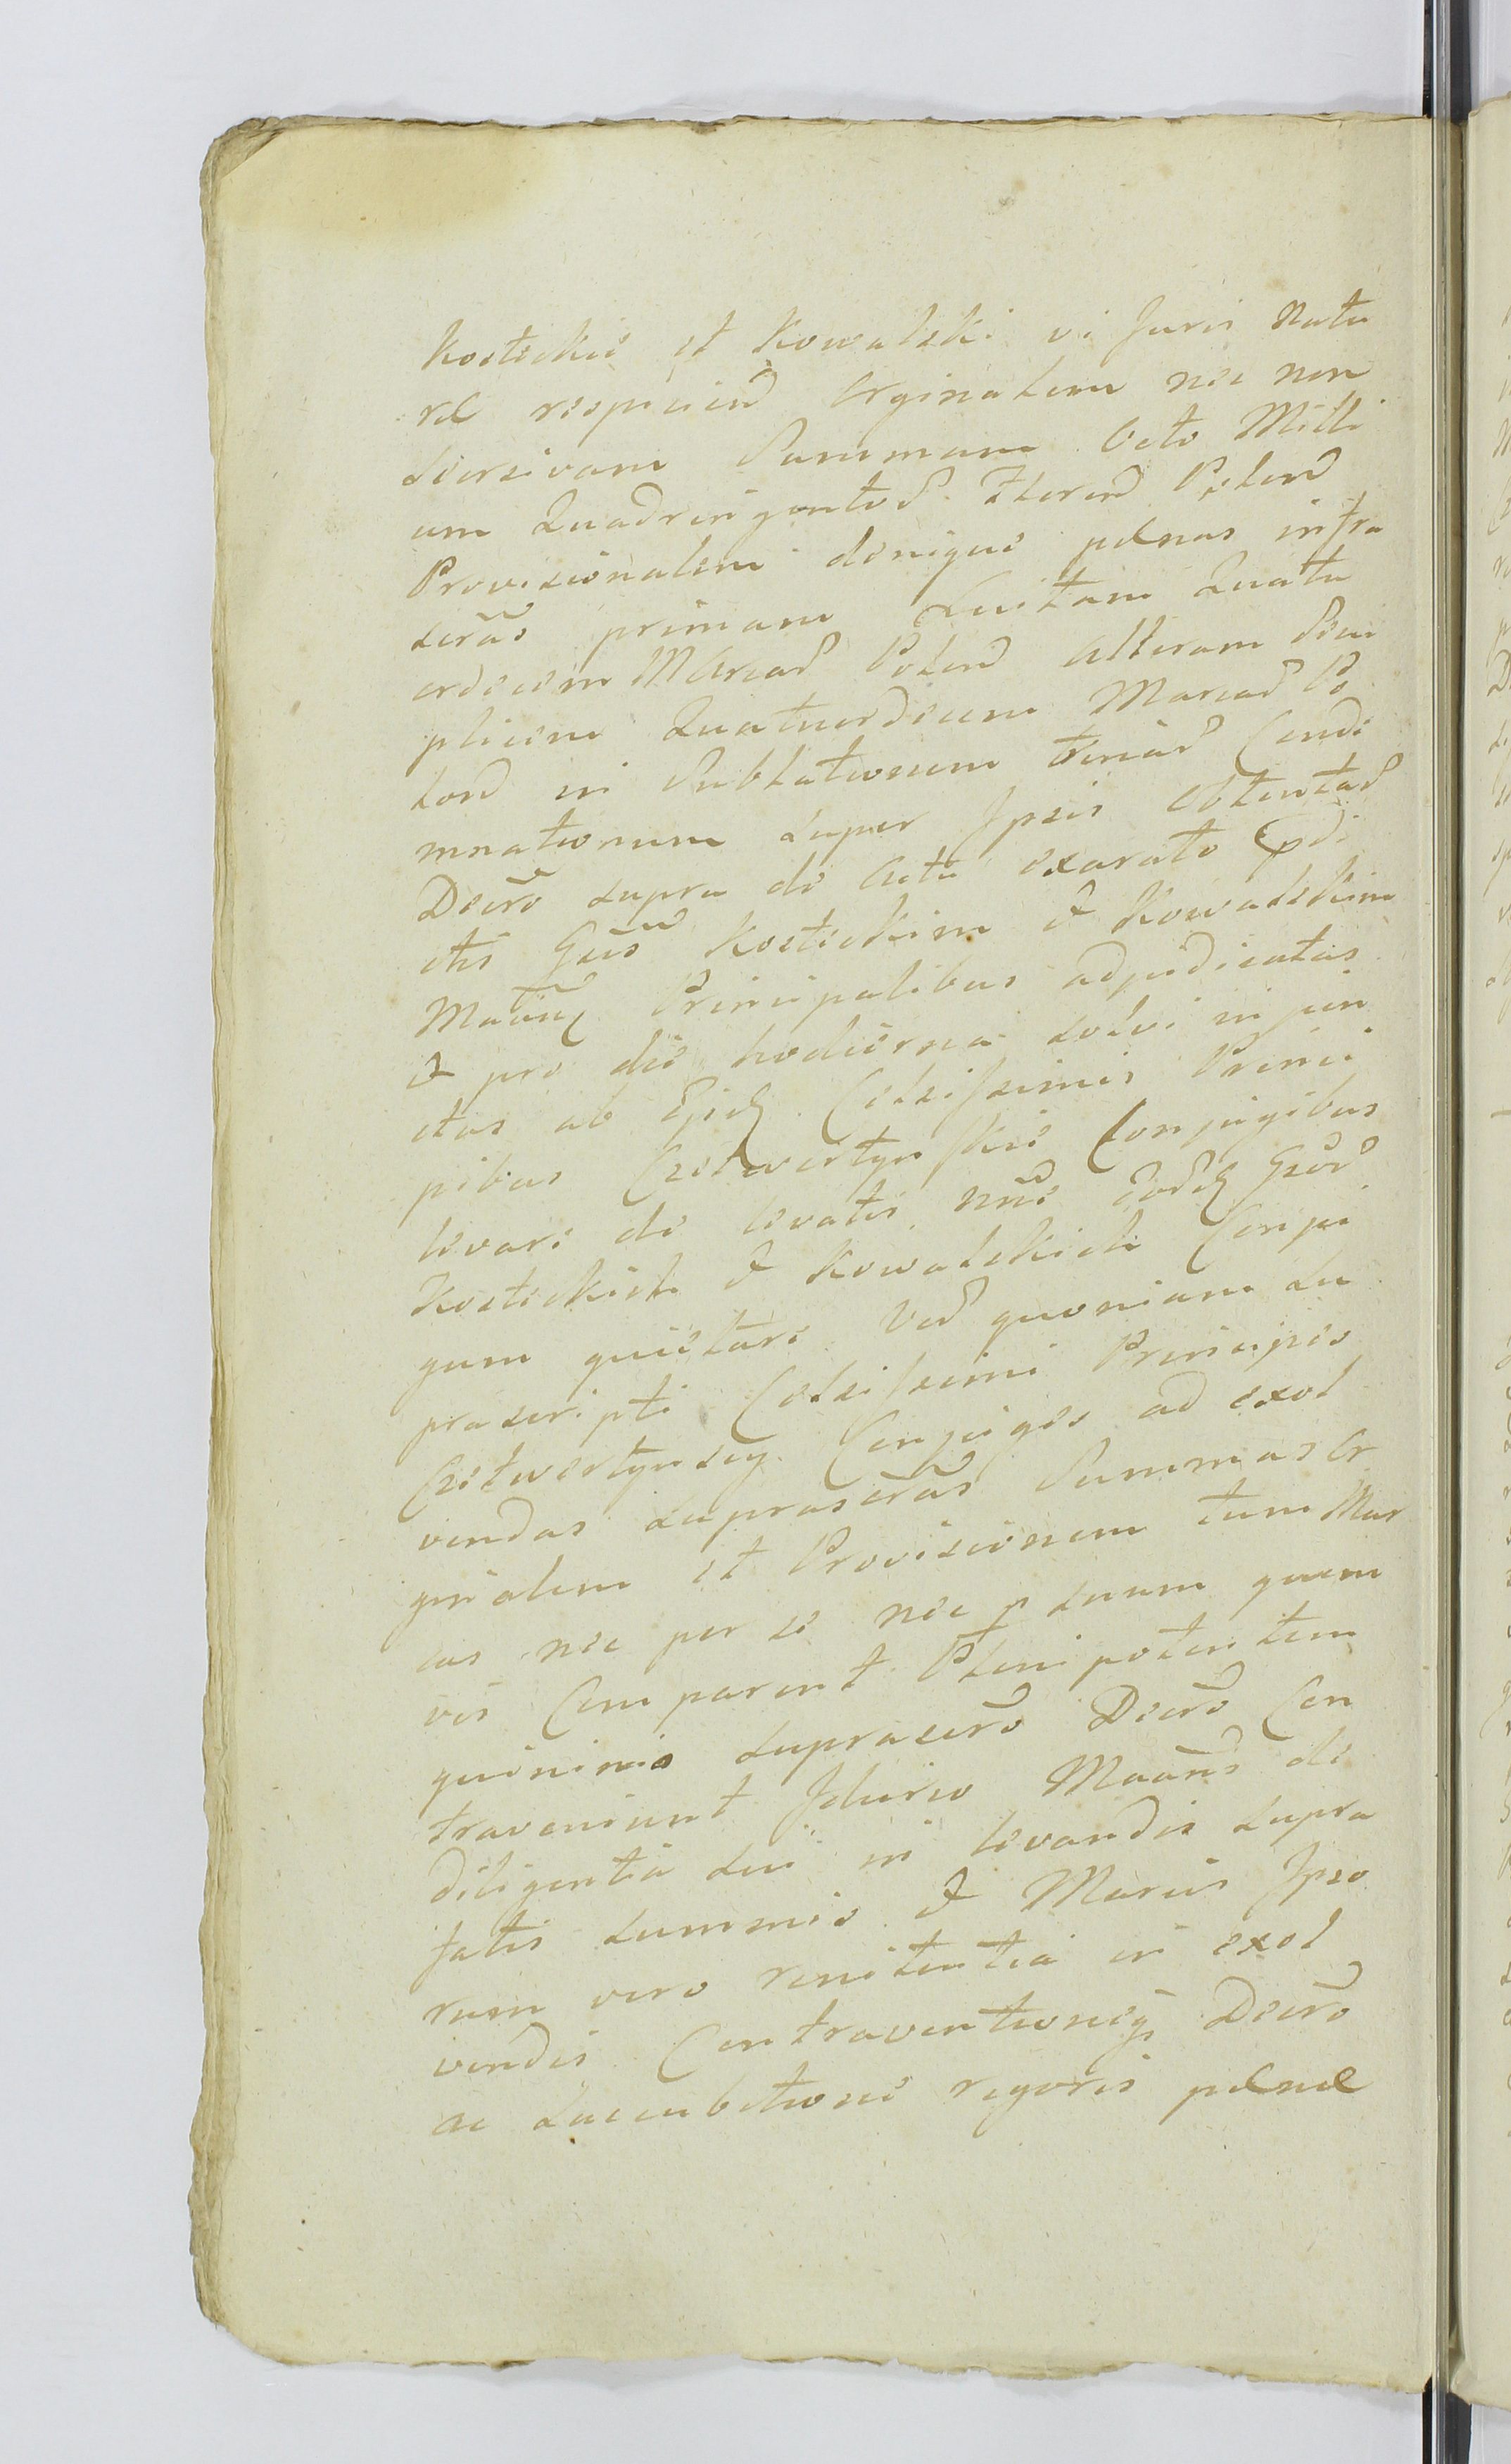 Kostickie et Kowalski vi Juris Natu
ræ respiciend Orginalem nec non
diversivam Summam Octo Milli
um Quadringentod Floren͠d Polon͠d
Provisionalem denique pænas infra
scr͠as primam Luitam Quatu
ordecim Marcad Polond alteram Sim
plicem Quatuordecim Marcad Po
lond in Sublationem trinad Cond͠e
mnationum super Ipsis obtentad
Decr͠o supra de actu exarato p͠di
ctis G͠sis Kostickim & Kowalskim
Principalibus adjudicatas
& pro die hodierna solvi injun
ctas ab Celsissimis Princi
pibus Czetwertynskie Conjugibus
levare de levatis n͠ne G͠sod
Kostickich & Kowalskich Conju
gum quietare Ved quoniam su
prascripti Celsissimi Principes
Czetwertynscy Conjuges ad exol
vendas suprascr͠as Summas Or
ginalem et Provisionem tum Mar
cas nec per se nec p suum quem
vis Comparent Plenipotentem
quinimio suprascr͠o Decr͠o Con
traveniunt Idcirco Maan͠s de
diligentia sui in levandis supra
fatis summis & Marcis Ipso
rum vero renitentia in exol
vendis Contraventioneq Decr͠o
ac succubitione rigoris pænæ